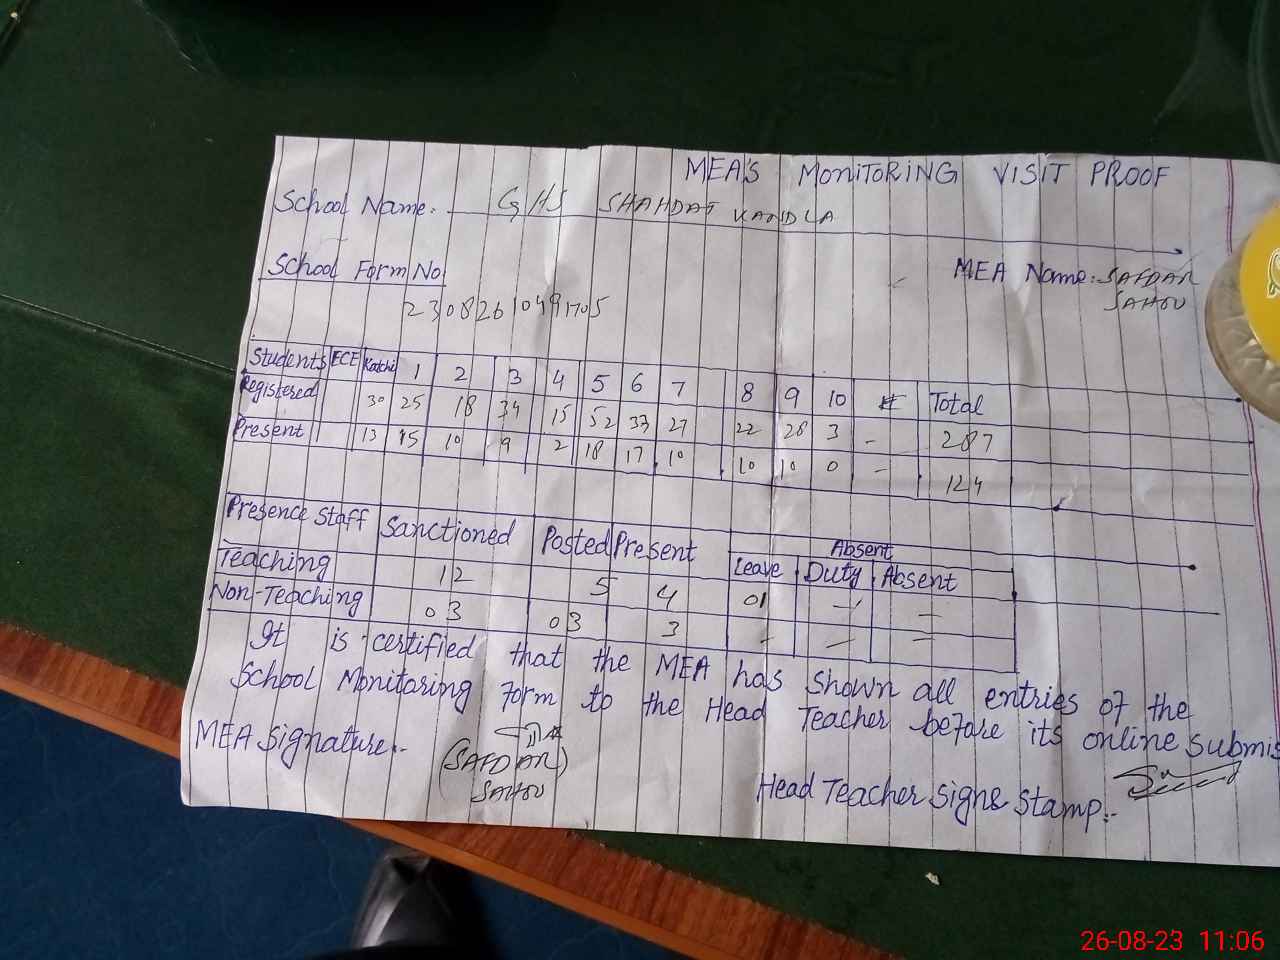 MEA'S MONITORING VISIT PROOF
School Name:- GHS SHAHDAT KANDLA
School Form No
23082610491705
MEA Name:- SAFDAR
SAHOU
Students ECE Katchi 1 2 3 4 5 6 7 8 9 10 Total
Registered 30 25 18 34 15 52 33 27 22 28 3 - 287
Present 13 15 10 9 2 18 17 10 10 10 0 - 124
Presence Staff Sanctioned Posted Present Absent
Leave Duty Absent
Teaching 12 5 4 01 - -
Non-Teaching 03 03 3 - - -
It is certified that the MEA has shown all entries of the
School Monitoring Form to the Head Teacher before its online submis
MEA Signature:-
(SAFDAR)
SAHOU
Head Teacher Sign & Stamp:-
26-08-23 11:06